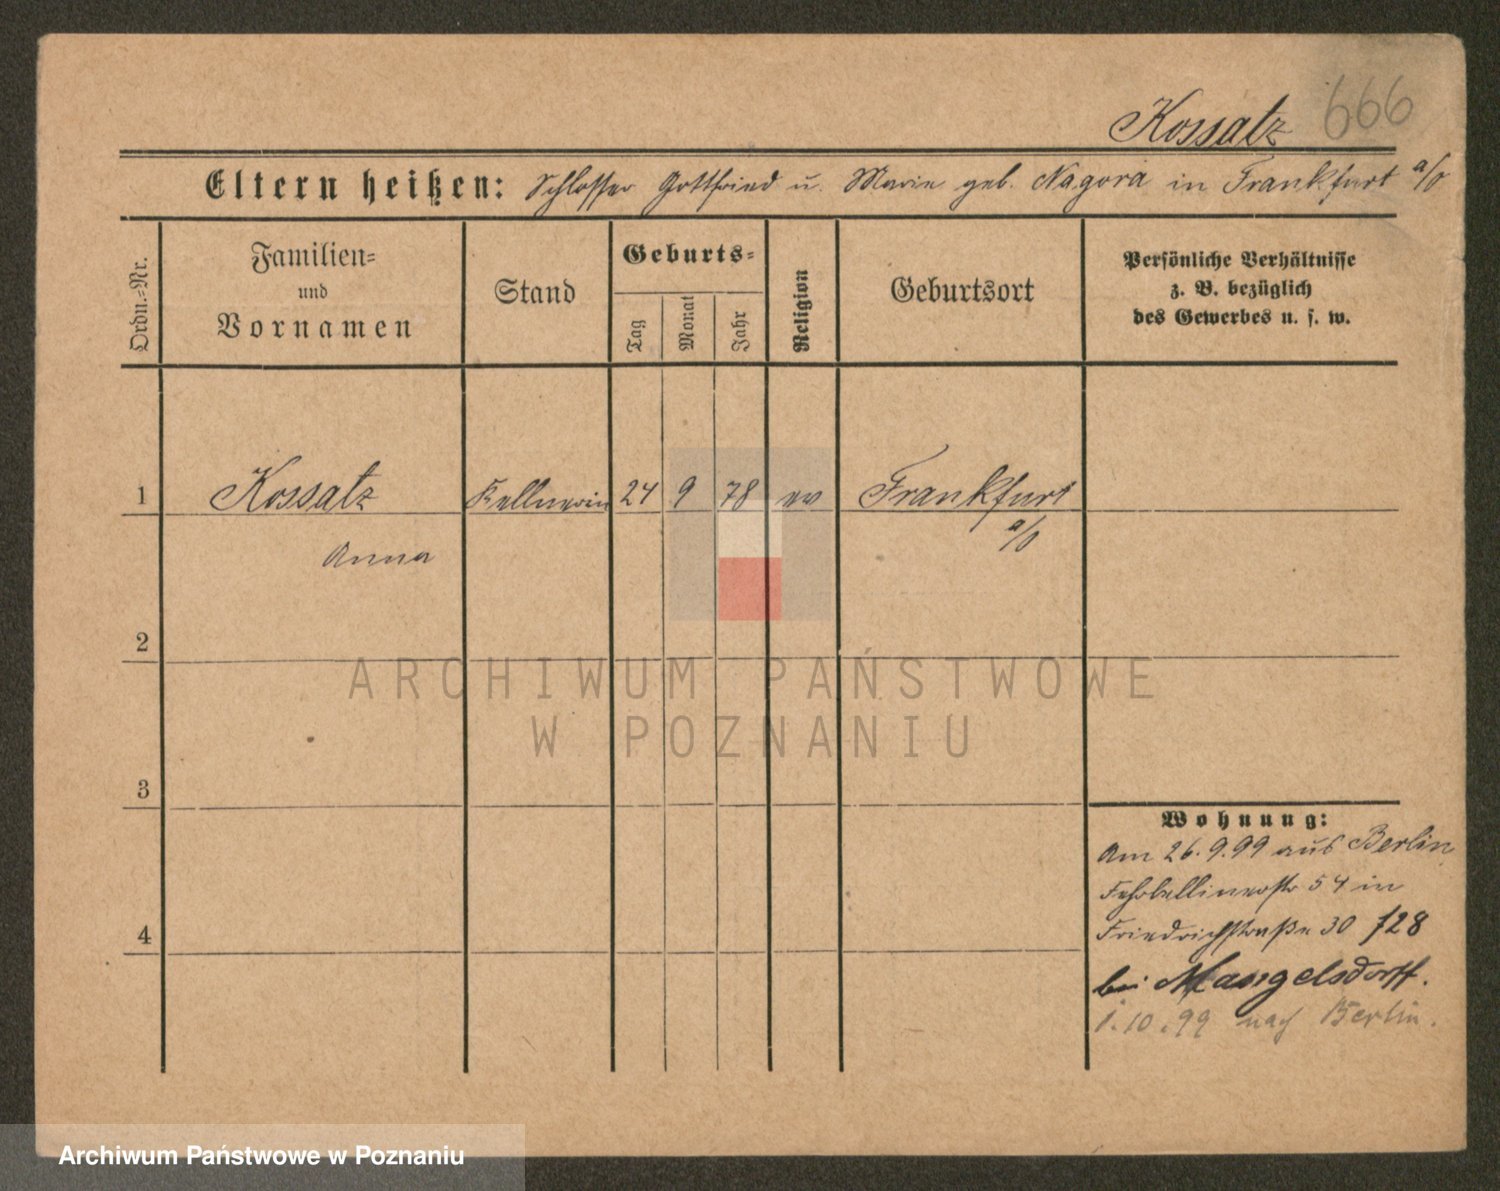 Kossatz 666
Eltern heißen: Schlosser Gottfried u. Marie geb. Nagora in Frankfurt a/O
Ordn.-Nr.
Familien-
und
Vornamen
Stand
Geburts-
Tag
Monat
Jahr
Religion
Geburtsort
Persönliche Verhältnisse
z. B. bezüglich
des Gewerbes u. s. w.
1 Kossatz Kellnerin 24 9 78 ev Frankfurt
a/O
Anna
2
ARCHIWUM PAŃSTWOWE
W POZNANIU
3
Wohnung:
Am 26.9.99 aus Berlin
Fehrbellinerstr 54 in
Friedrichstraße 30 f28
4
bei Mangelsdorff.
1.10.99 nach Berlin.
Archiwum Państwowe w Poznaniu